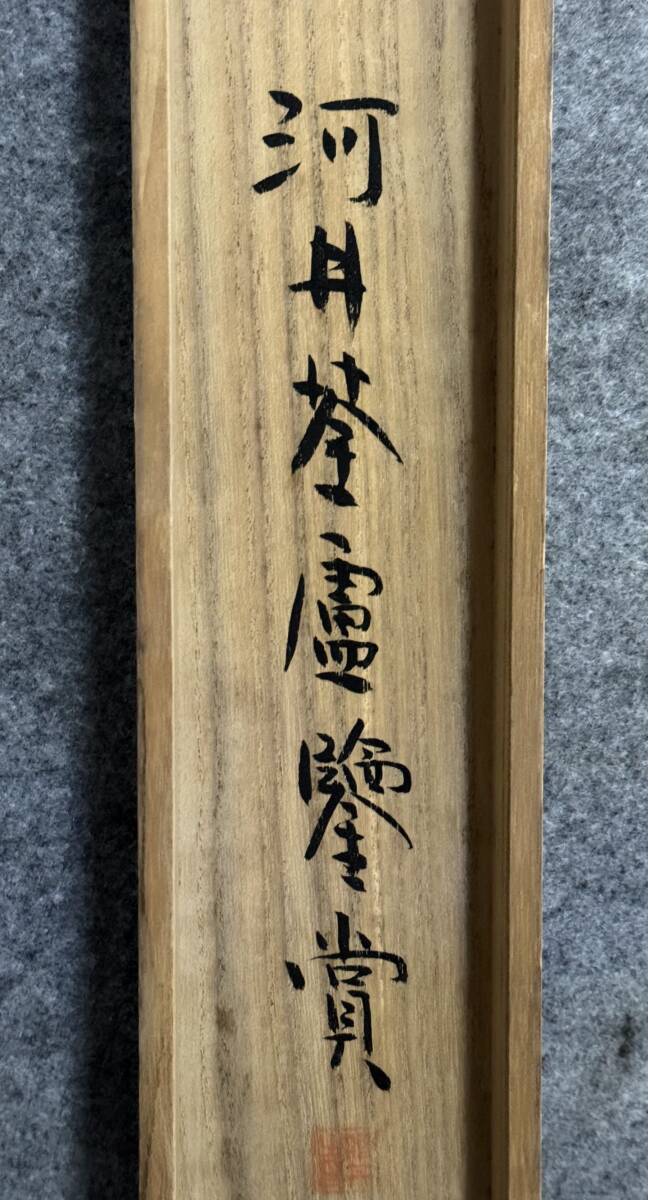 河井荃廬鑒賞